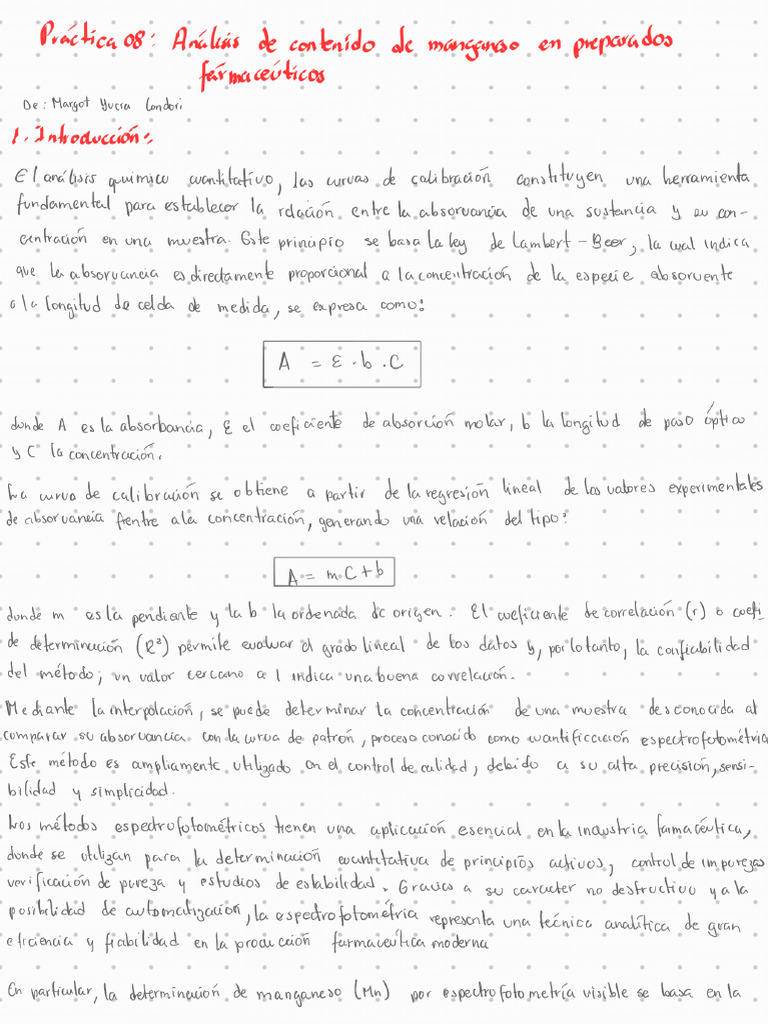 Práctica 08: Análisis de contenido de manganeso en preparados
farmacéuticos
De: Margot Yucra Condori
1. Introducción:
El análisis químico cuantitativo, las curvas de calibración constituyen una herramienta
fundamental para establecer la relación entre la absorvancia de una sustancia y su con-
centración en una muestra. Este principio se basa la ley de Lambert-Beer, la cual indica
que la absorvancia es directamente proporcional a la concentración de la especie absorvente
a la longitud de celda de medida, se expresa como:
A = ε · b · C
donde A es la absorbancia, ε el coeficiente de absorción molar, b la longitud de paso óptico
y C la concentración.
La curva de calibración se obtiene a partir de la regresión lineal de los valores experimentales
de absorvancia frente a la concentración, generando una relación del tipo:
A = m C + b
donde m es la pendiente y la b la ordenada de origen. El coeficiente de correlación (r) o coefi-
de determinación (R²) permite evaluar el grado lineal de los datos y, por lo tanto, la confiabilidad
del método; un valor cercano a 1 indica una buena correlación.
Mediante la interpolación, se puede determinar la concentración de una muestra desconocida al
comparar su absorvancia con la curva de patrón, proceso conocido como cuantificación espectrofotométrica
Este método es ampliamente utilizado en el control de calidad, debido a su alta precisión, sensi-
bilidad y simplicidad.
Los métodos espectrofotométricos tienen una aplicación esencial en la industria farmacéutica,
donde se utilizan para la determinación cuantitativa de principios activos, control de impurezas
verificación de pureza y estudios de estabilidad. Gracias a su caracter no destructivo y a la
posibilidad de automatización, la espectrofotometría representa una técnica analítica de gran
eficiencia y fiabilidad en la producción farmacéutica moderna
En particular, la determinación de manganeso (Mn) por espectrofotometría visible se basa en la